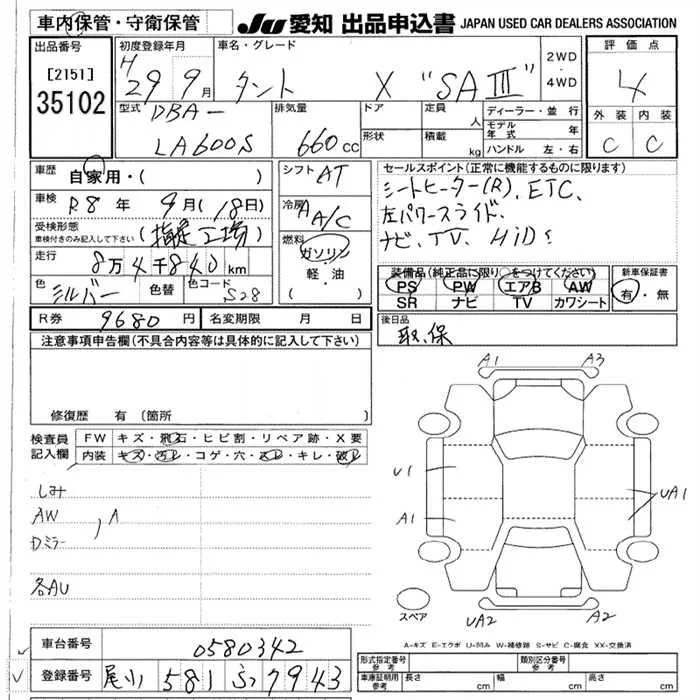 車内保管・守衛保管
JU 愛知 出品申込書 JAPAN USED CAR DEALERS ASSOCIATION
出品番号
[2151]
35102
初度登録年月
H 29 9月
車名・グレード
タント X "SA III"
2WD
4WD
評価点
4
型式
DBA-
LA600S
排気量
660cc
ドア
定員
人
形状
積載
kg
ディーラー・並行
モデル年式 年
ハンドル 左・右
外装 内装
C C
車歴
自家用・( )
車検
R8 年 9月(18日)
受検形態
車検付きのみ記入して下さい
(指定工場)
走行
8万4千840km
色
シルバー
色替
色コード
S28
シフト
AT
冷房
AA/C
燃料
ガソリン
軽・油
セールスポイント(正常に機能するものに限ります)
シートヒーター(R)、ETC、
左パワースライド、
ナビ、TV、HiD、
装備品(純正品に限り○をつけてください)
PS PW エアB AW
SR ナビ TV カワシート
新車保証書
有・無
R券 9680円
名変期限 月 日
後日品
取、保
注意事項申告欄(不具合内容等は具体的に記入して下さい)
修復歴 有(箇所
検査員
記入欄
FW キズ・飛石・ヒビ割・リペア跡・X要
内装 キズ・汚レ・コゲ・穴・スレ・キレ・破レ
しみ
AW
Dミラー
, A
各AU
A1 A3
U1
A1
UA1
UA2 A2
スペア
A-キズ E-エクボ U-凹み W-補修跡 S-サビ C-腐食 XX-交換済
車台番号
0580342
登録番号
尾小 581 ふ 7943
形式指定番号
参考
類別区分番号
参考
車庫証明用
参考
長さ cm
幅 cm
高さ cm